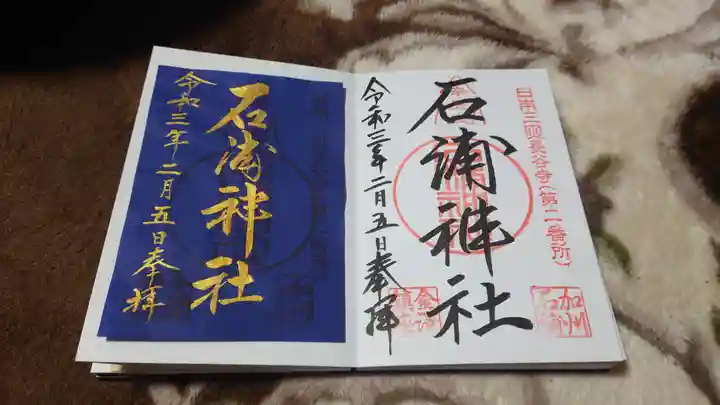 日本三四長谷寺(第二番所)
石浦神社
令和三年二月五日奉拝
加州
石浦
石浦神社
令和三年二月五日奉拝